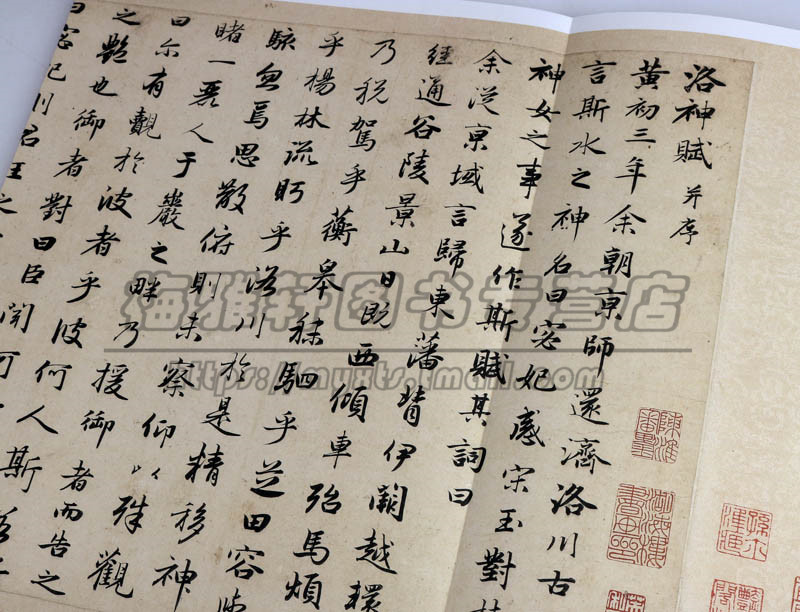 洛神賦 并序
黃初三年余朝京師還濟洛川古
言斯水之神名曰宓妃感宋玉對
神女之事遂作斯賦其詞曰
余從京域言歸東藩背伊闕越轘
經通谷陵景山日既西傾車殆馬煩
乃稅駕乎蘅皋秣駟乎芝田容
乎楊林流眄乎洛川於是精移神
駭忽焉思散俯則未察仰以殊觀
睹一麗人于巖之畔乃援御者而告之
曰尔有覿於彼者乎彼何人斯
之艷也御者對曰臣聞河
宓妃則君王之
雅轩图书专营店